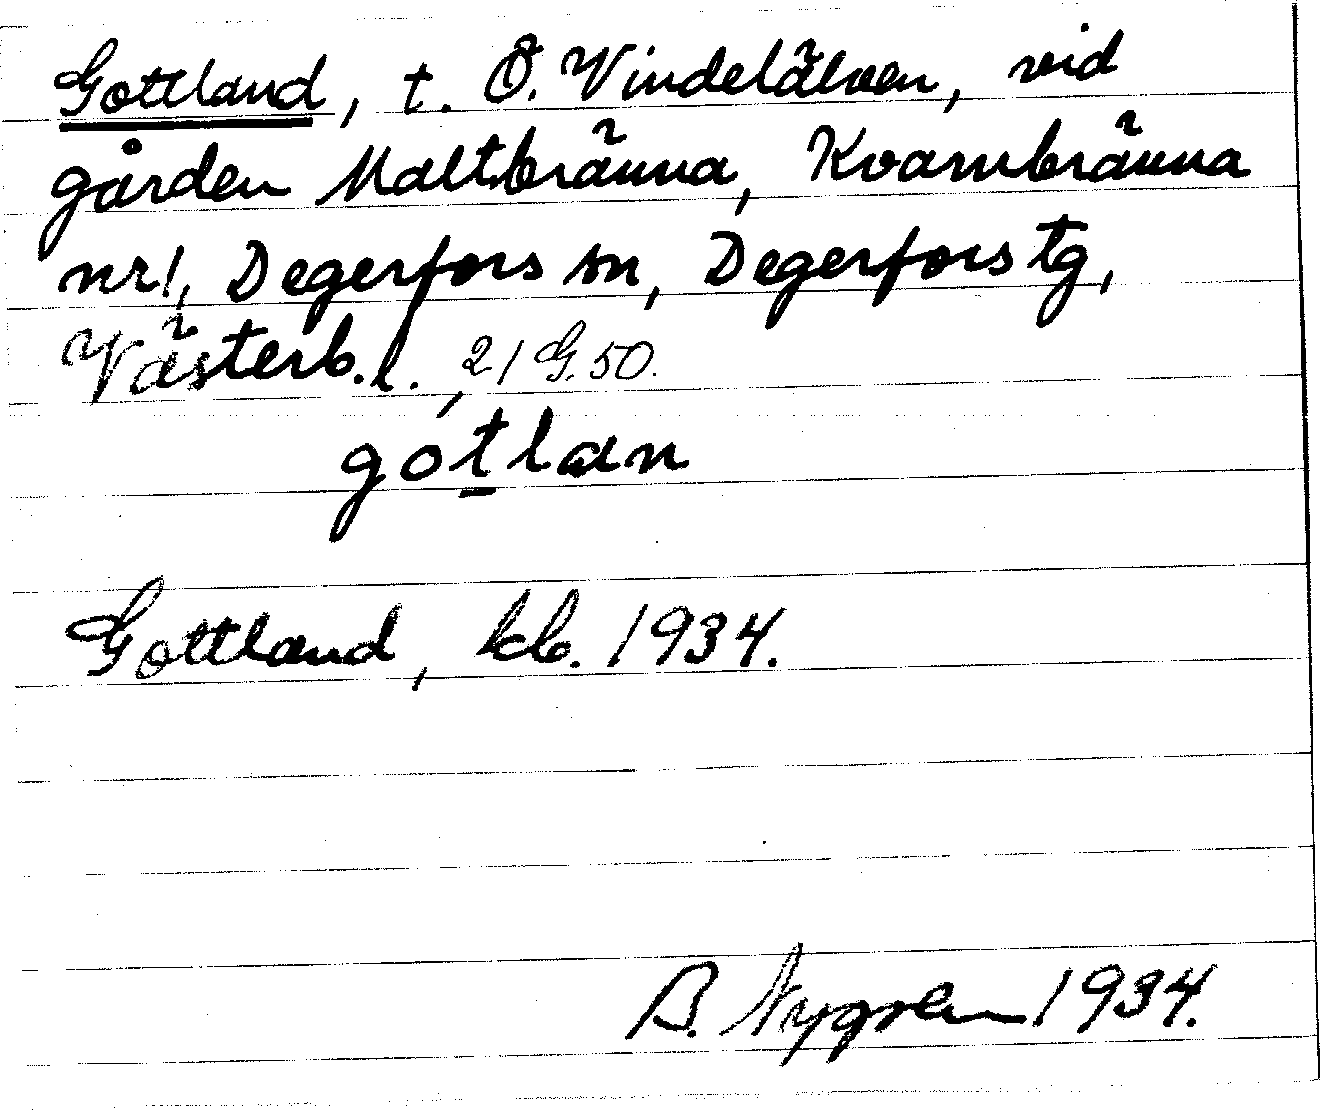 Gottland, t. Ö. Vindelälven, vid
gården Maltbränna, Kvarnbränna
nr 1, Degerfors sn, Degerfors tg,
Västerb. l. 21 G. 50.
gót̲lan
Gottland, kb. 1934.
B. Nygren 1934.